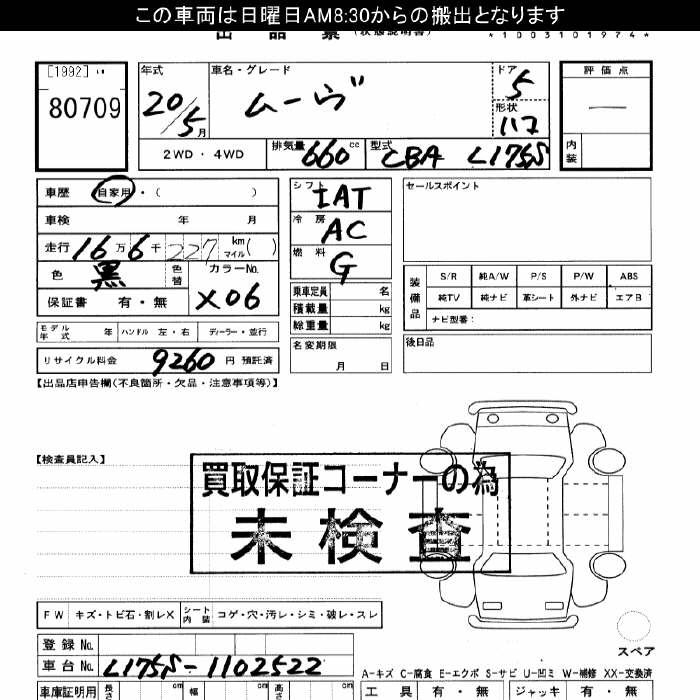 この車両は日曜日AM8:30からの搬出となります
出品票 (状態説明書) *1003101974*
[1992]
80709
年式 車名・グレード ドア 評価点
20/5月 ムーヴ 5 —
形状
117
2WD・4WD 排気量 660cc 型式 CBA L175S 内装
車歴 自家用・( ) シフト IAT セールスポイント
車検 年 月 冷房 AC
走行 16万6千227km マイル( ) 燃料 G
色 黒 色替 カラーNo. X06
保証書 有・無
乗車定員 名
積載量 kg
総重量 kg
装備品 S/R 純A/W P/S P/W ABS
純TV 純ナビ 革シート 外ナビ エアB
ナビ型番:
モデル年式 年 ハンドル 左・右 ディーラー・並行
名変期限 月 日
後日品
リサイクル料金 9260 円 預託済
【出品店申告欄(不良箇所・欠品・注意事項等)】
【検査員記入】
買取保証コーナーの為
未検査
FW キズ・トビ石・割レX シート内装 コゲ・穴・汚レ・シミ・破レ・スレ
スペア
登録No.
車台No. L175S-1102522
A-キズ C-腐食 E-エクボ S-サビ U-凹ミ W-補修 XX-交換済
車庫証明用 長さ cm 幅 cm 高さ cm 工具 有・無 ジャッキ 有・無